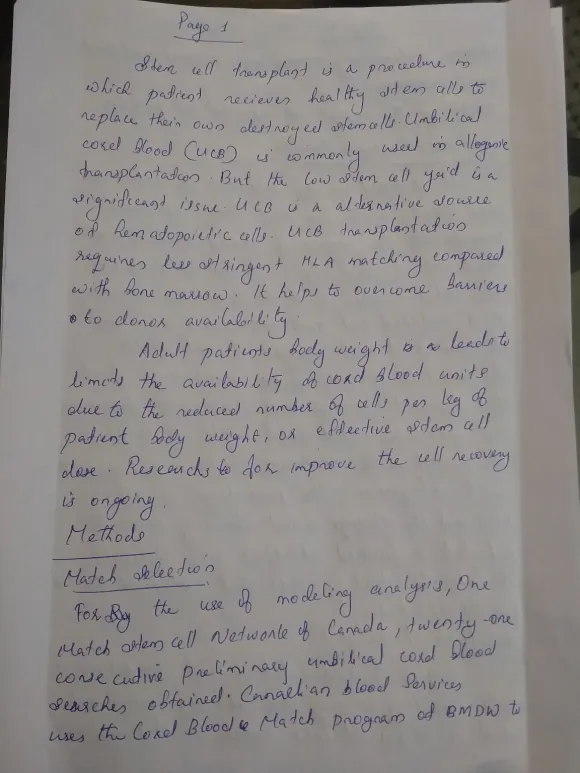 Page 1
Stem cell transplant is a procedure in
which patient recieves healthy stem cells to
replace their own destroyed stem cells. Umbilical
cord blood (UCB) is commonly used in allogenic
transplantation. But the low stem cell yeid is a
significant issue. UCB is a alternative source
of hematopoietic cells. UCB transplantation
requires less stringent HLA matching compared
with bone marrow. It helps to overcome barriers
to donor availability.
Adult patients body weight is leads to
limits the availability of cord blood units
due to the reduced number of cells per kg of
patient body weight, or effective stem cell
dose. Researchs to for improve the cell recovery
is ongoing.
Methods
Match selection
For By the use of modeling analysis, One
Match stem cell Network of Canada, twenty-one
consecutive preliminary umbilical cord blood
searches obtained. Canadian blood Services
uses the Cord Blood Match program of BMDW to